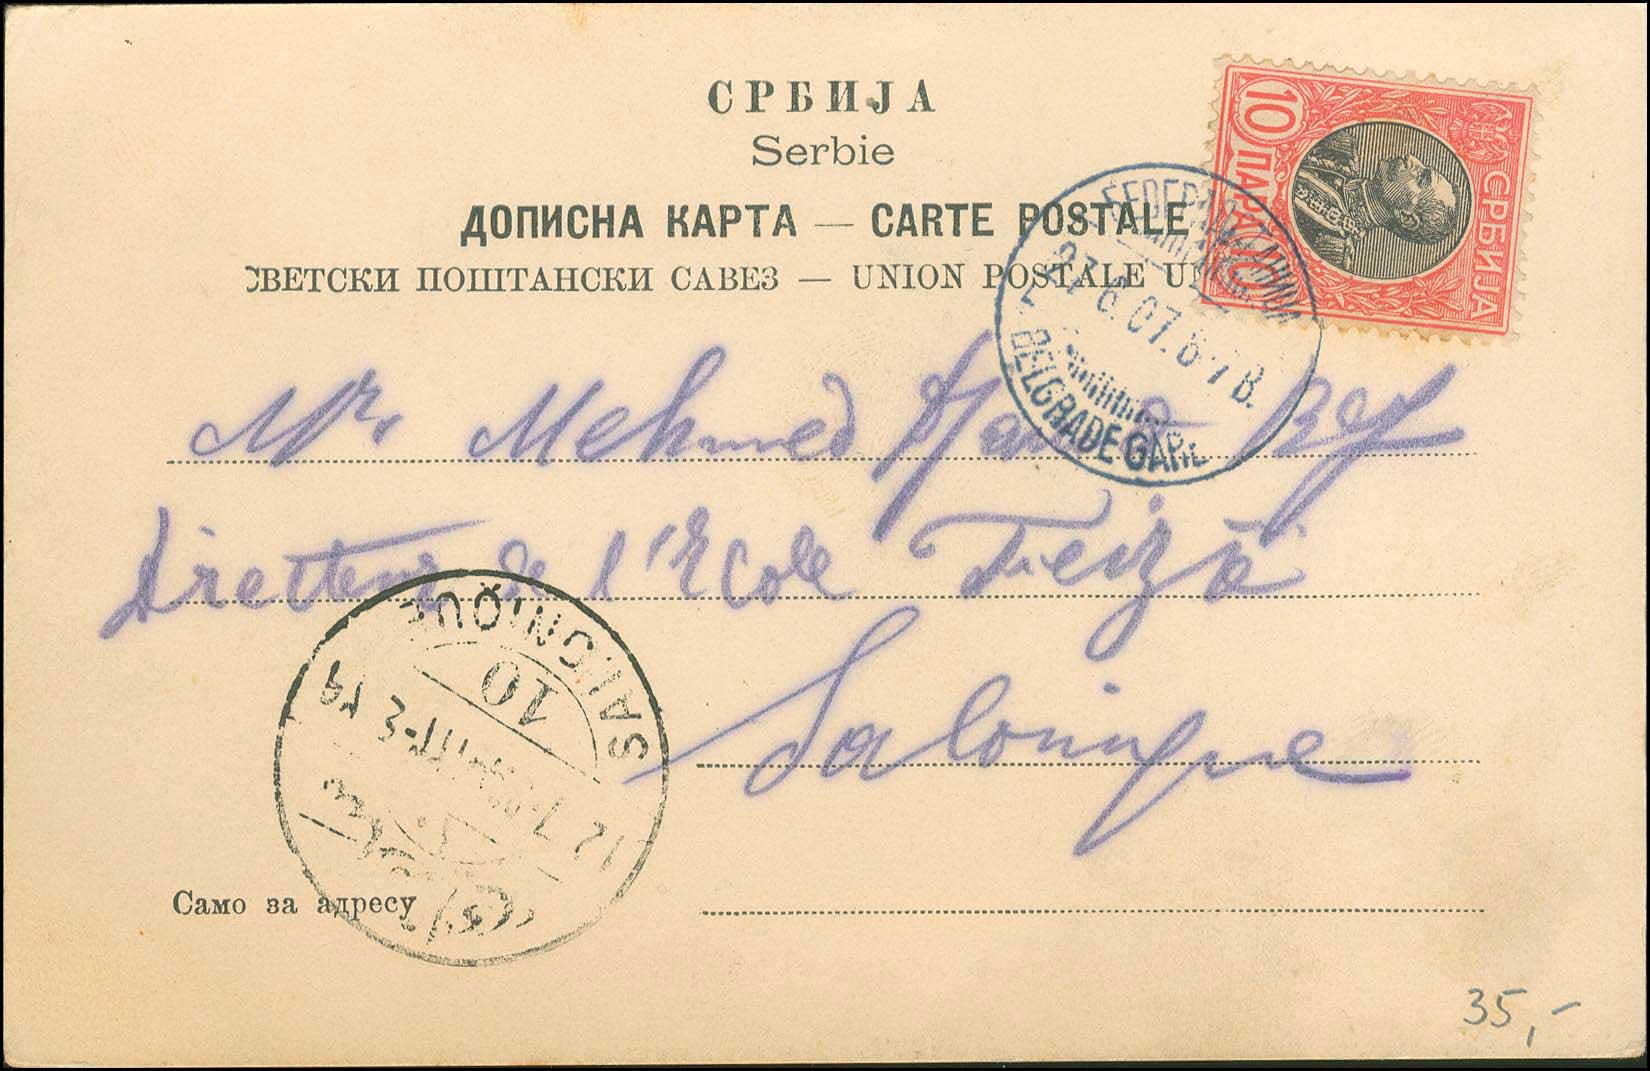 СРБИЈА
Serbie
ДОПИСНА КАРТА — CARTE POSTALE
СВЕТСКИ ПОШТАНСКИ САВЕЗ — UNION POSTALE
10 ПАРА 10
СРБИЈА
27. 6. 07.
BELGRADE GARE
Mr. Mehmed Bey
Diretteur de l'Ecole Feizié
Salonique
SALONIQUE
10
Само за адресу
35,-